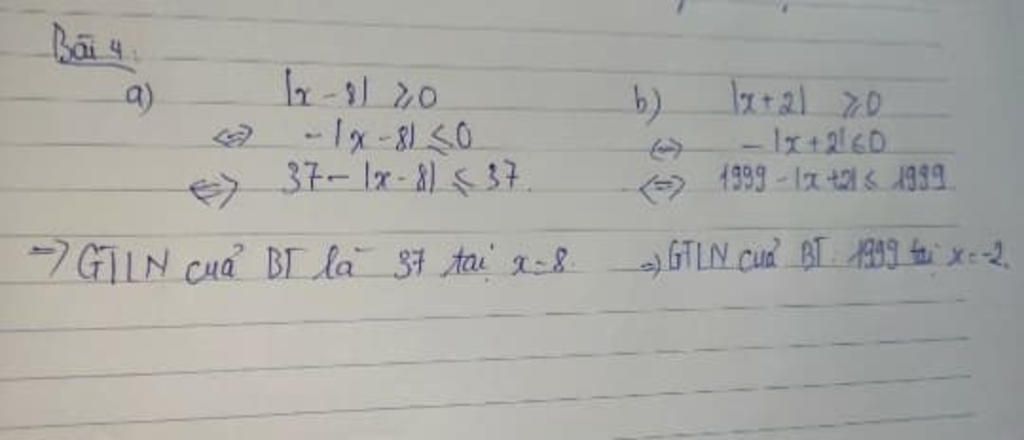 Bài 4.
a) |x - 8| ≥ 0
<=> - |x - 8| ≤ 0
<=> 37 - |x - 8| ≤ 37.
=> GTLN cuả BT là 37 tại x = 8.
b) |x + 2| ≥ 0
<=> - |x + 2| ≤ 0
<=> 1999 - |x + 2| ≤ 1999
=> GTLN cuả BT. 1999 tại x = -2.